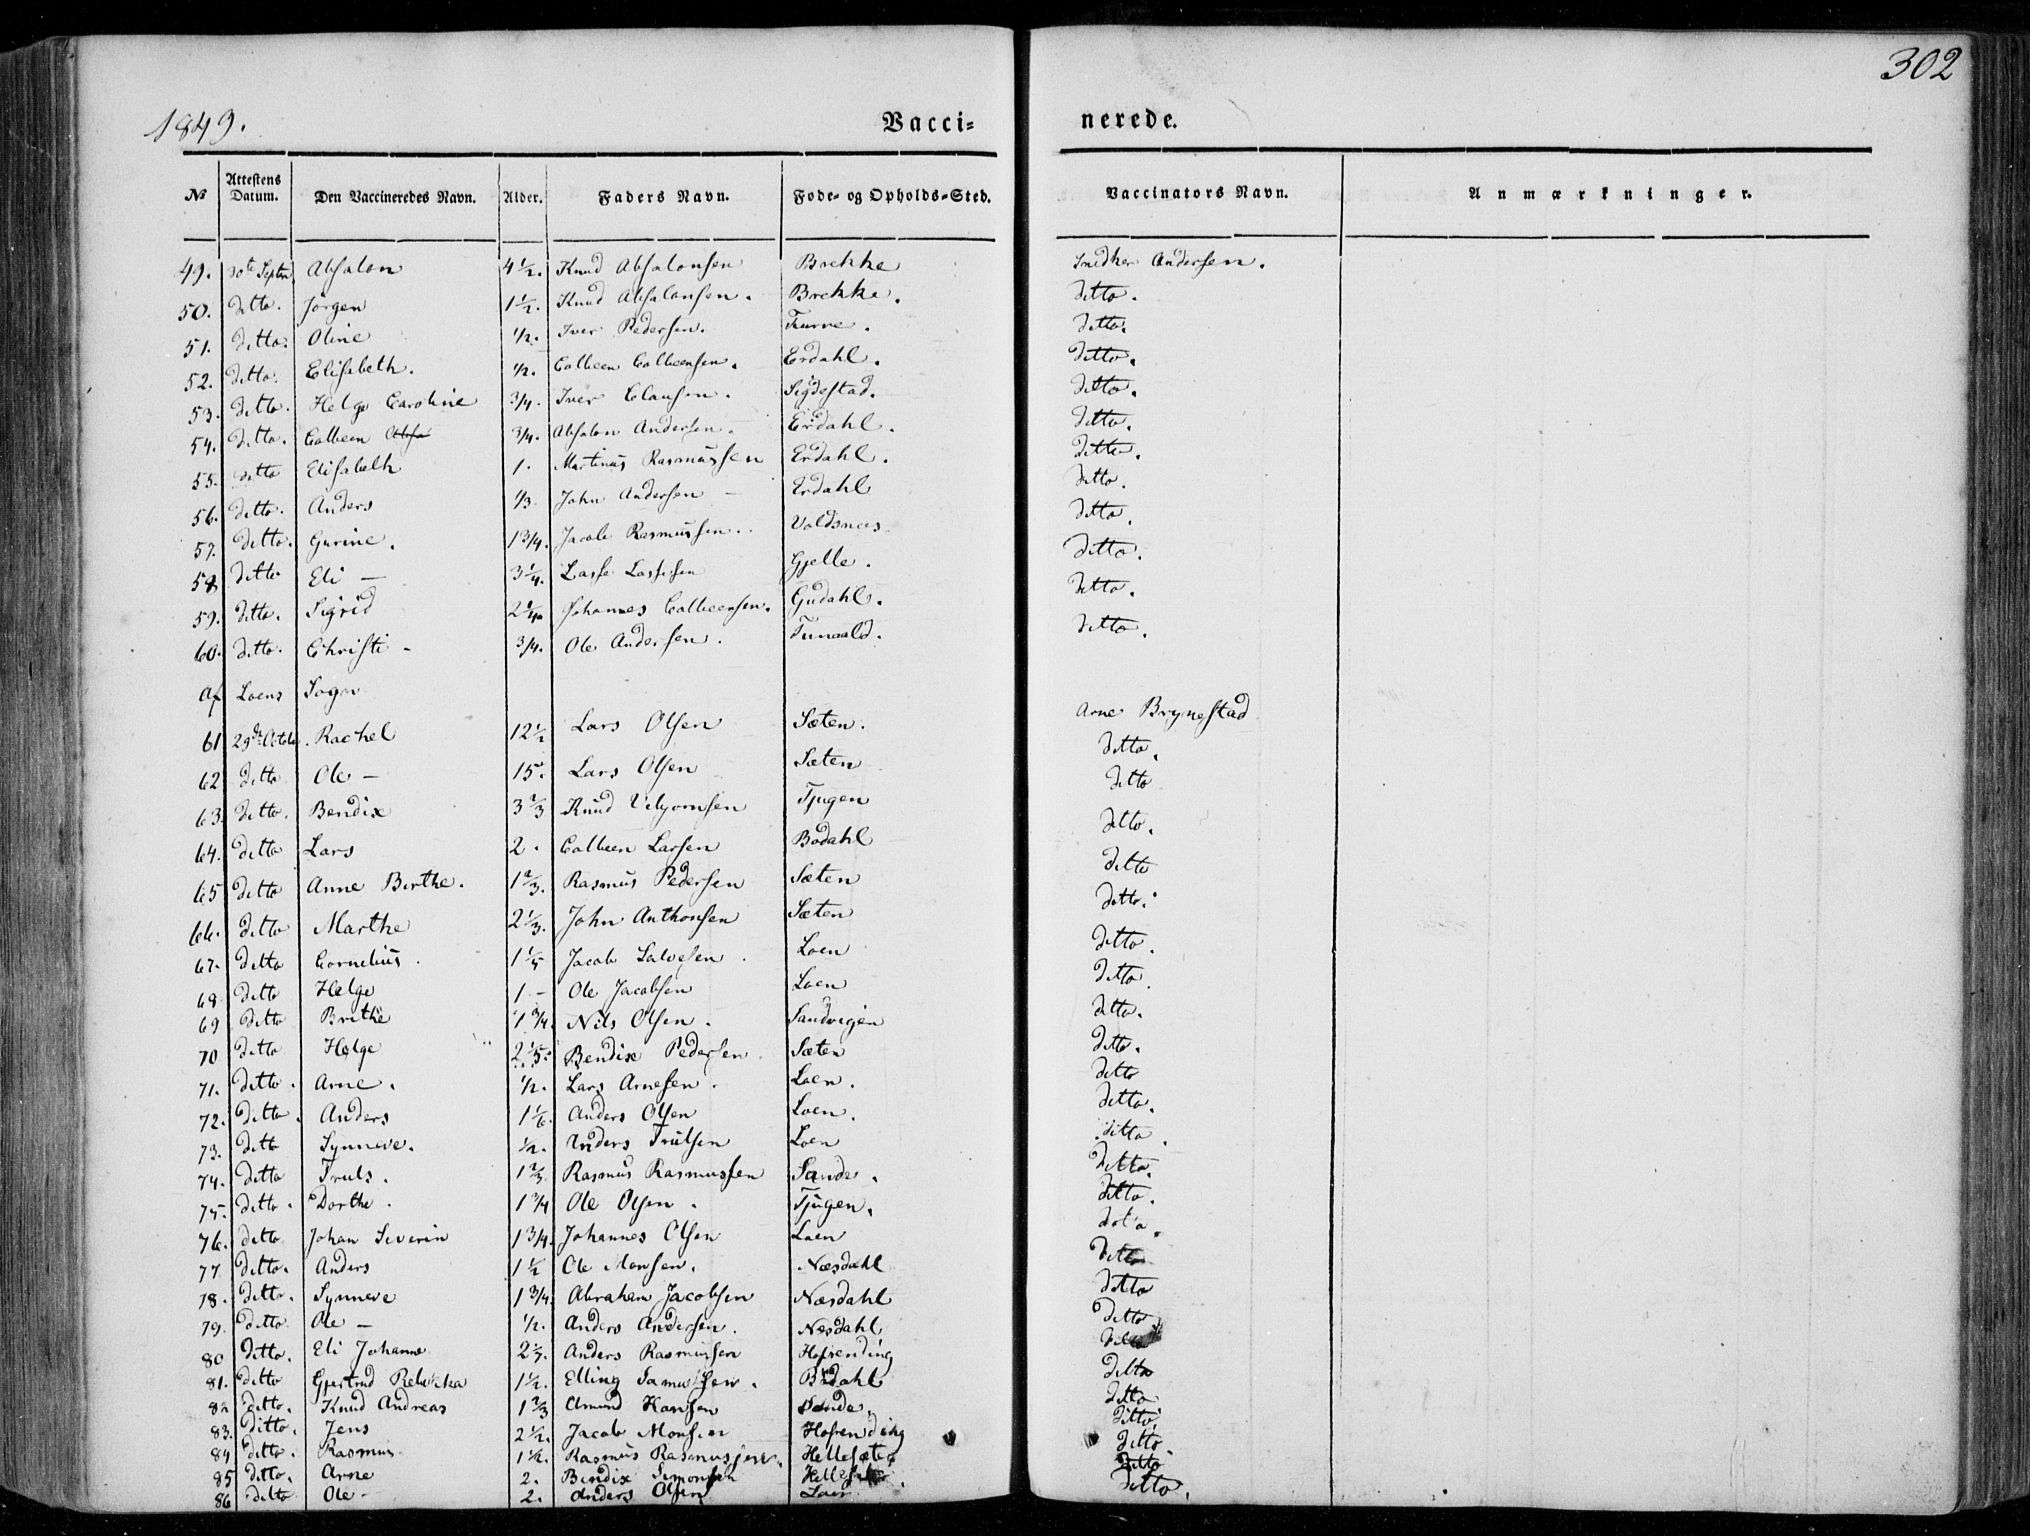 302
1849. Vacci= nerede.
No Attestens Datum. Den Vaccineredes Navn. Alder. Faders Navn. Føde- og Opholds-Sted. Vaccinators Navn. Anmærkninger.
49. 30te Septbr Absalon 4 1/2. Knud Absalonsen Brekke Andersen.
50. ditto. Jörgen 1 1/2. Knud Absalonsen. Brekke. ditto.
51. ditto. Oline 1/2. Iver Pedersen. ditto.
52. ditto. Elisabeth. 1/2. Colbeen Colbeensen. Erdahl. ditto.
53. ditto. Helge Caroline 3/4. Iver Clausen. Sigdestad. ditto.
54. ditto. Colbeen 3/4. Absalon Andersen. Erdahl. ditto.
55. ditto Elisabeth 1. Martinus Rasmussen Erdahl. ditto.
56. ditto. Anders 1/3. John Andersen – Erdahl ditto.
57. ditto. Gurine. 1 3/4. Jacob Rasmussen. Voldsnes ditto.
58 ditto Eli – 3 1/4. Lasse Lassesen Gjelle. ditto.
59. ditto. Sigrid 2 1/4 Johannes Colbeensen. Gudahl. ditto.
60. ditto. Christi – 3/4. Ole Andersen. Tunaald. ditto.
Af Loens Sogn
61 29de Octob. Rachel 12 1/2 Lars Olsen Sæten. Arne Brynestad
62 ditto Ole – 15. Lars Olsen Sæten ditto.
63. ditto. Bendix 3 2/3 Knud Tjugen ditto
64. ditto Lars 2. Colbeen Larsen Bödahl ditto.
65 ditto Anne Birthe. 1 2/3. Rasmus Pedersen Sæten ditto
66. ditto Marthe 2 1/3. John Anthonsen Sæten ditto.
67. ditto Cornelius. 1 1/5 Jacob Salvesen. Loen ditto.
68 ditto Helge 1 – Ole Jacobsen Loen ditto.
69 ditto Brithe 1 3/4. Nils Olsen. Sandvigen ditto.
70 ditto Helge 2 1/5. Bendix Pedersen. Sæten ditto.
71. ditto. Arne. 1/2. Lars Arnesen. Loen. ditto
72. ditto. Anders 1 1/6. Anders Olsen Loen. ditto.
73. ditto Synneve. 1/2. Anders Trulsen Loen ditto.
74. ditto Truls. 1 2/3. Rasmus Rasmussen Sande. ditto.
75. ditto. Dorthe. 1 3/4 Ole Olsen. Tjugen. ditto.
76. ditto Johan Severin 1 3/4. Johannes Olsen Loen ditto.
77 ditto. Anders 1 1/2 Ole Monsen. Næsdahl ditto
78. ditto. Synneve 1 3/4. Abraham Jacobsen Næsdahl ditto
79. ditto. Ole – 1/2. Anders Andersen. Næsdahl ditto
80 ditto. Eli Johanne Anders Rasmussen Hofrending ditto
81. ditto Gjertrud Rebekka 1 1/2. Elling Samuelsen. Bödahl ditto
82 ditto. Knud Andreas 1 2/3 Amund Hansen Sande. ditto
83. ditto. Jens 2 1/2. Jacob Monsen Hofrending ditto
84 ditto. Rasmus 1 1/2. Rasmus Rasmussen. Hellesæter ditto.
85 ditto. Arne 2. Bendix Simonsen ditto
86 ditto Ole – 2. Anders Olsen Loen ditto.